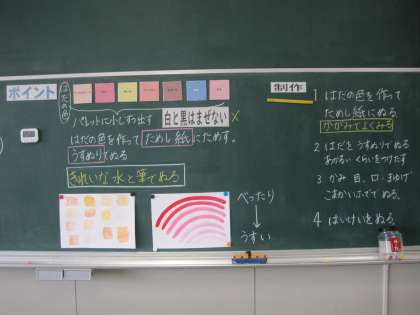 ポイント
はだの色
パレットに小しずつ出す
白と黒はまぜない ×
はだの色を作って ためし紙にためす。
うすぬりでぬる
きれいな水と筆でぬる
べったり
↓
うすい
制作
1 はだの色を作って
ためし紙にぬる
かがみでよくみる
2 はだを うすぬりでぬる
あかるい くらいをつけたす
3 かみ 目、口、まゆげ
こまかいふででぬる。
4 はいけいをぬる